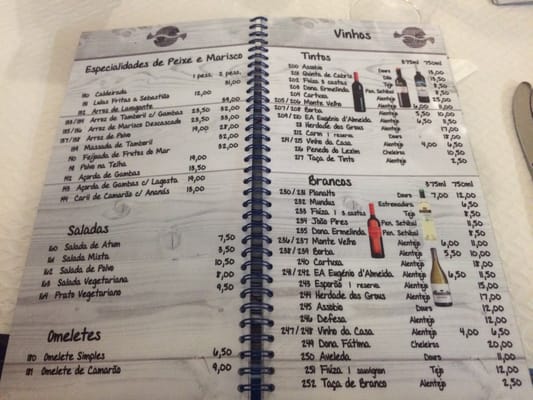 Especialidades de Peixe e Marisco
1 pess. 2 pess.
110 Caldeirada 31,00
111 Lulas Fritas à Sebastião 12,00
112 Arroz de Lavagante 39,00
Arroz de Tamboril c/ Gambas 23,50 32,00
Arroz de Marisco Descascado 23,50 32,00
Arroz de Polvo 19,00 28,00
Massada de Tamboril 32,00
Feijoada de Frutos do Mar 32,00
Polvo na Telha 19,00
Açorda de Gambas 13,00
Açorda de Gambas c/ Lagosta 19,00
Caril de Camarão c/ Ananás 13,00
Saladas
160 Salada de Atum 7,50
Salada Mista 3,50
162 Salada de Polvo 10,50
Salada Vegetariana 8,00
Prato Vegetariano 9,50
Omeletes
180 Omelete Simples 6,50
181 Omelete de Camarão 9,00
Vinhos
Tintos 375ml 750ml
200 Assobio Douro 13,00
201 Quinta de Cabriz Dão
202 Fiúza 3 castas Tejo
203 Dona Ermelinda
204 Cartuxa Alentejo
205/206 Monte Velho Alentejo
207/208 Borba Alentejo 5,50 10,50
EA Eugénio d'Almeida Alentejo
Herdade das Grous Alentejo 17,00
Carm Reserva Douro 18,00
Vinho da Casa Alentejo 4,00 6,50
226 Penedo do Lexim 10,50
227 Taça de Tinto Alentejo 2,50
Brancos 375ml 750ml
230/231 Planalto Douro 7,00 12,00
232 Mundus Estremadura 6,50
233 Fiúza 3 castas Tejo 8,50
234 João Pires Pen. Setúbal 11,50
235 Dona Ermelinda Pen. Setúbal 8,50
236/237 Monte Velho Alentejo 6,00 11,00
238/239 Borba Alentejo 5,50 10,00
240 Cartuxa Alentejo 18,00
241/242 EA Eugénio d'Almeida Alentejo 6,50 11,50
243 Esporão reserva Alentejo 15,00
244 Herdade das Grous Alentejo 17,00
245 Assobio Douro 12,00
246 Defesa Alentejo 12,00
247/248 Vinho da Casa Alentejo 4,00 6,50
249 Dona Fátima Cheleiros 20,00
250 Aveleda Douro 11,00
251 Fiúza sauvignon Tejo 12,00
252 Taça de Branco Alentejo 2,50